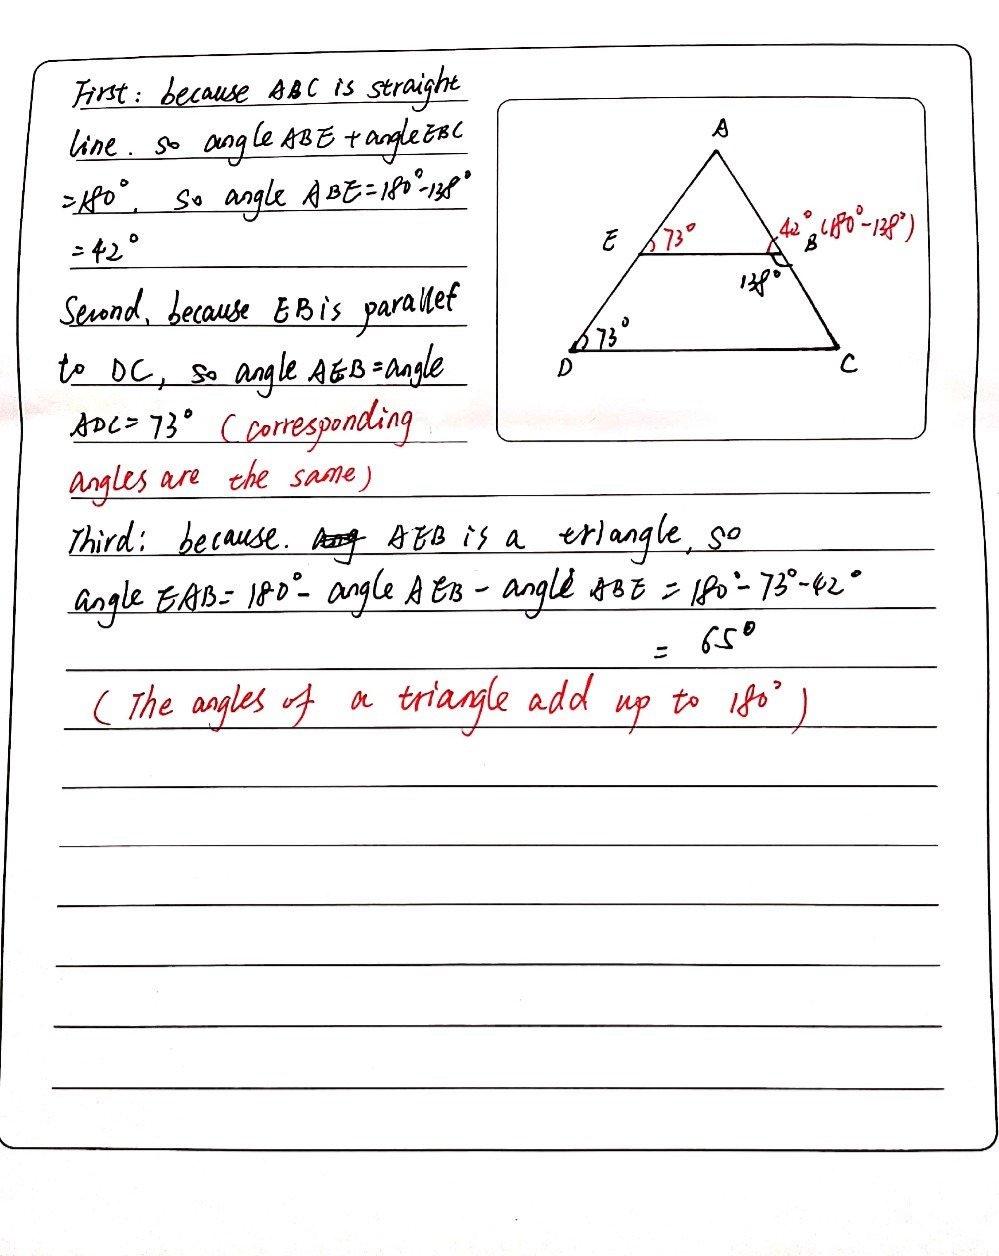 First: because ABC is straight
line. so angle ABE + angle EBC
=180°. So angle ABE=180°-138°
=42°
Second, because EB is parallel
to DC, so angle AEB=angle
ADC=73° (corresponding
angles are the same)
Third: because. AEB is a triangle, so
angle EAB=180°- angle AEB - angle ABE = 180°-73°-42°
= 65°
(The angles of a triangle add up to 180°)
A
E 73° 42° (180°-138°)
B
138°
73°
D C